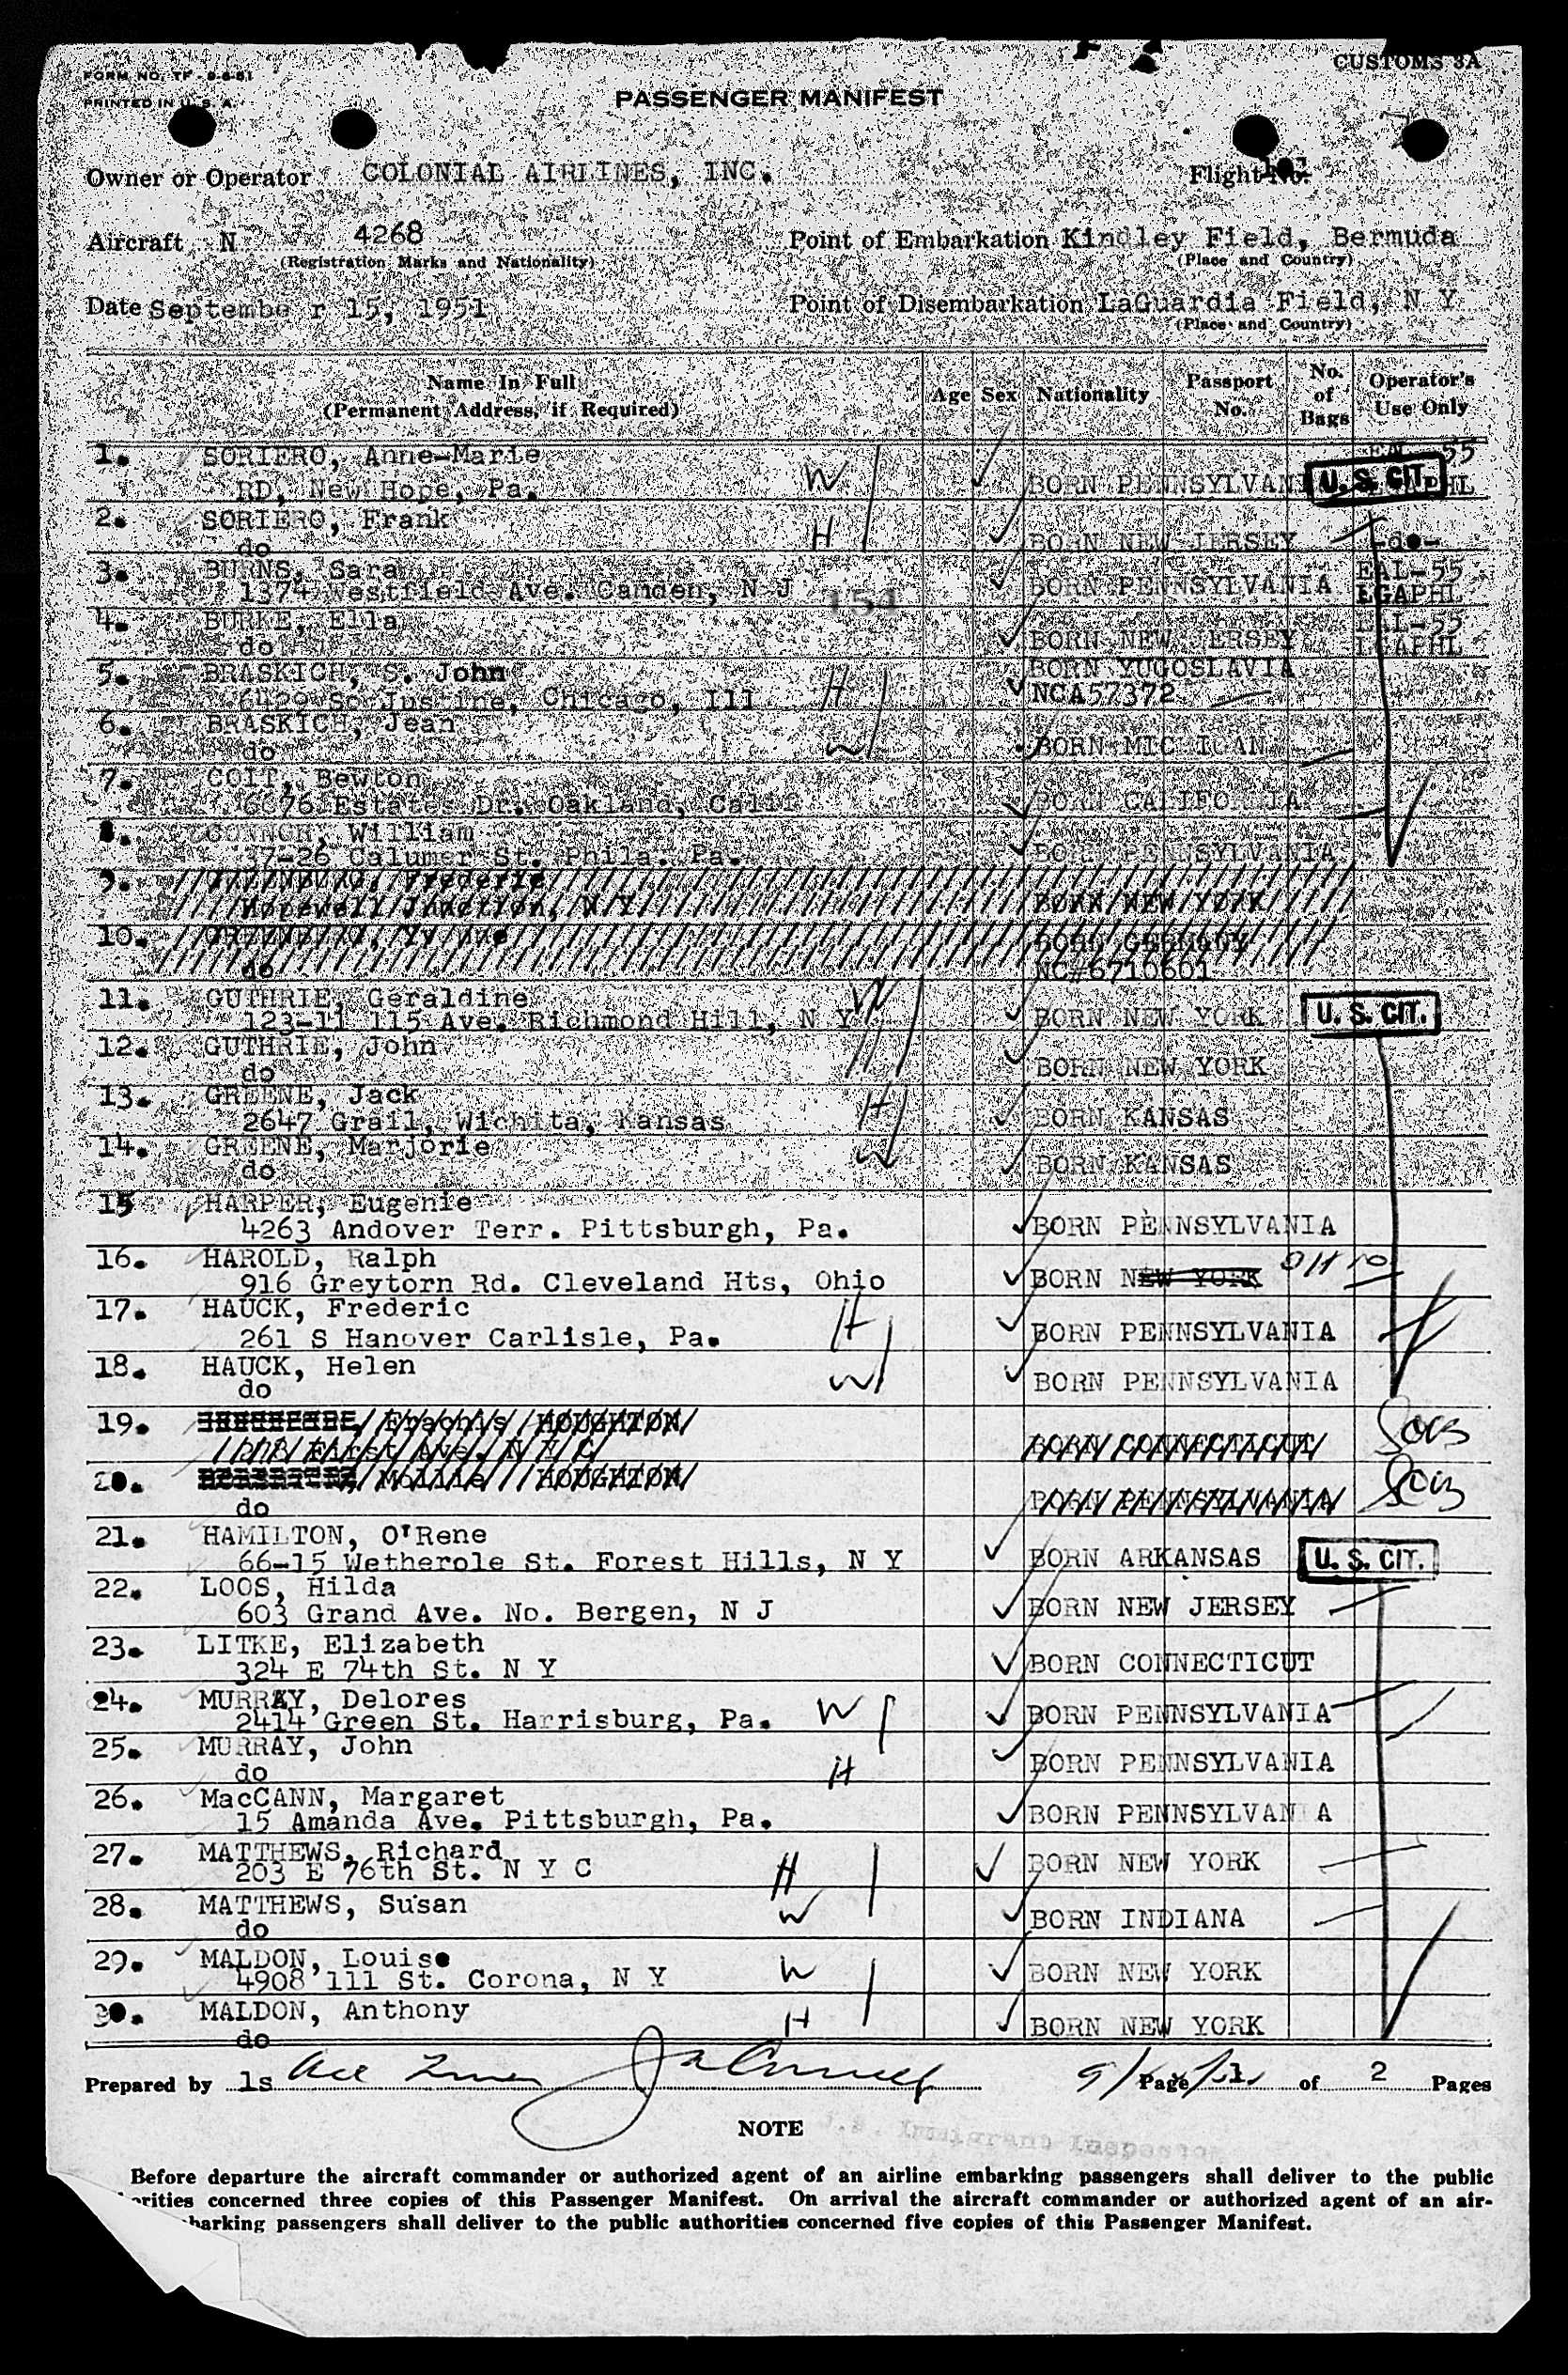 FORM NO. TF - 8-6-51
PRINTED IN U. S. A.
CUSTOMS 3A
PASSENGER MANIFEST
Owner or Operator COLONIAL AIRLINES, INC. Flight No.
Aircraft N 4268 Point of Embarkation Kindley Field, Bermuda
(Registration Marks and Nationality) (Place and Country)
Date Septembe r 15, 1951 Point of Disembarkation LaGuardia Field, N Y
(Place and Country)
Name In Full (Permanent Address, if Required) Age Sex Nationality Passport No. No. of Bags Operator's Use Only
1. SORIERO, Anne-Marie W 55
RD, New Hope, Pa. BORN PENNSYLVANI U. S. CIT. PHL
2. SORIERO, Frank H
do BORN NEW JERSEY -do-
3. BURNS, Sara EAL-55
1374 Westfield Ave. Camden, N J 154 BORN PENNSYLVANIA LGAPHL
4. BURKE, Ella EAL-55
do BORN NEW JERSEY LGAPHL
5. BRASKICH, S. John H BORN YUGOSLAVIA
6429 So Justine, Chicago, Ill NCA57372
6. BRASKICH, Jean W
do BORN MICHIGAN
7. COIT, Bewton
6076 Estates Dr. Oakland, Calif BORN CALIFORNIA
8. CONNOR, William
37-26 Calumer St. Phila. Pa. BORN PENNSYLVANIA
9. Frederic
Hopewell Junction, N Y BORN NEW YORK
10. BORN GERMANY
do NC#6710601
11. GUTHRIE, Geraldine W
123-11 115 Ave. Richmond Hill, N Y BORN NEW YORK U. S. CIT.
12. GUTHRIE, John H
do BORN NEW YORK
13. GREENE, Jack H
2647 Grail, Wichita, Kansas BORN KANSAS
14. GREENE, Marjorie W
do BORN KANSAS
15 HARPER, Eugenie
4263 Andover Terr. Pittsburgh, Pa. BORN PENNSYLVANIA
16. HAROLD, Ralph
916 Greytorn Rd. Cleveland Hts, Ohio BORN NEW YORK OHIO
17. HAUCK, Frederic H
261 S Hanover Carlisle, Pa. BORN PENNSYLVANIA
18. HAUCK, Helen W
do BORN PENNSYLVANIA
19. HOUGHTON
First Ave. N Y C BORN CONNECTICUT
20. Mollie HOUGHTON
do BORN PENNSYLVANIA
21. HAMILTON, O'Rene
66-15 Wetherole St. Forest Hills, N Y BORN ARKANSAS U. S. CIT.
22. LOOS, Hilda
603 Grand Ave. No. Bergen, N J BORN NEW JERSEY
23. LITKE, Elizabeth
324 E 74th St. N Y BORN CONNECTICUT
24. MURRAY, Delores W
2414 Green St. Harrisburg, Pa. BORN PENNSYLVANIA
25. MURRAY, John H
do BORN PENNSYLVANIA
26. MacCANN, Margaret
15 Amanda Ave. Pittsburgh, Pa. BORN PENNSYLVAN A
27. MATTHEWS, Richard H
203 E 76th St. N Y C BORN NEW YORK
28. MATTHEWS, Susan W
do BORN INDIANA
29. MALDON, Louise W
4908 111 St. Corona, N Y BORN NEW YORK
30. MALDON, Anthony H
do BORN NEW YORK
Prepared by ls Page 1 of 2 Pages
NOTE
U.S. Immigrant Inspector
Before departure the aircraft commander or authorized agent of an airline embarking passengers shall deliver to the public
orities concerned three copies of this Passenger Manifest. On arrival the aircraft commander or authorized agent of an air-
barking passengers shall deliver to the public authorities concerned five copies of this Passenger Manifest.